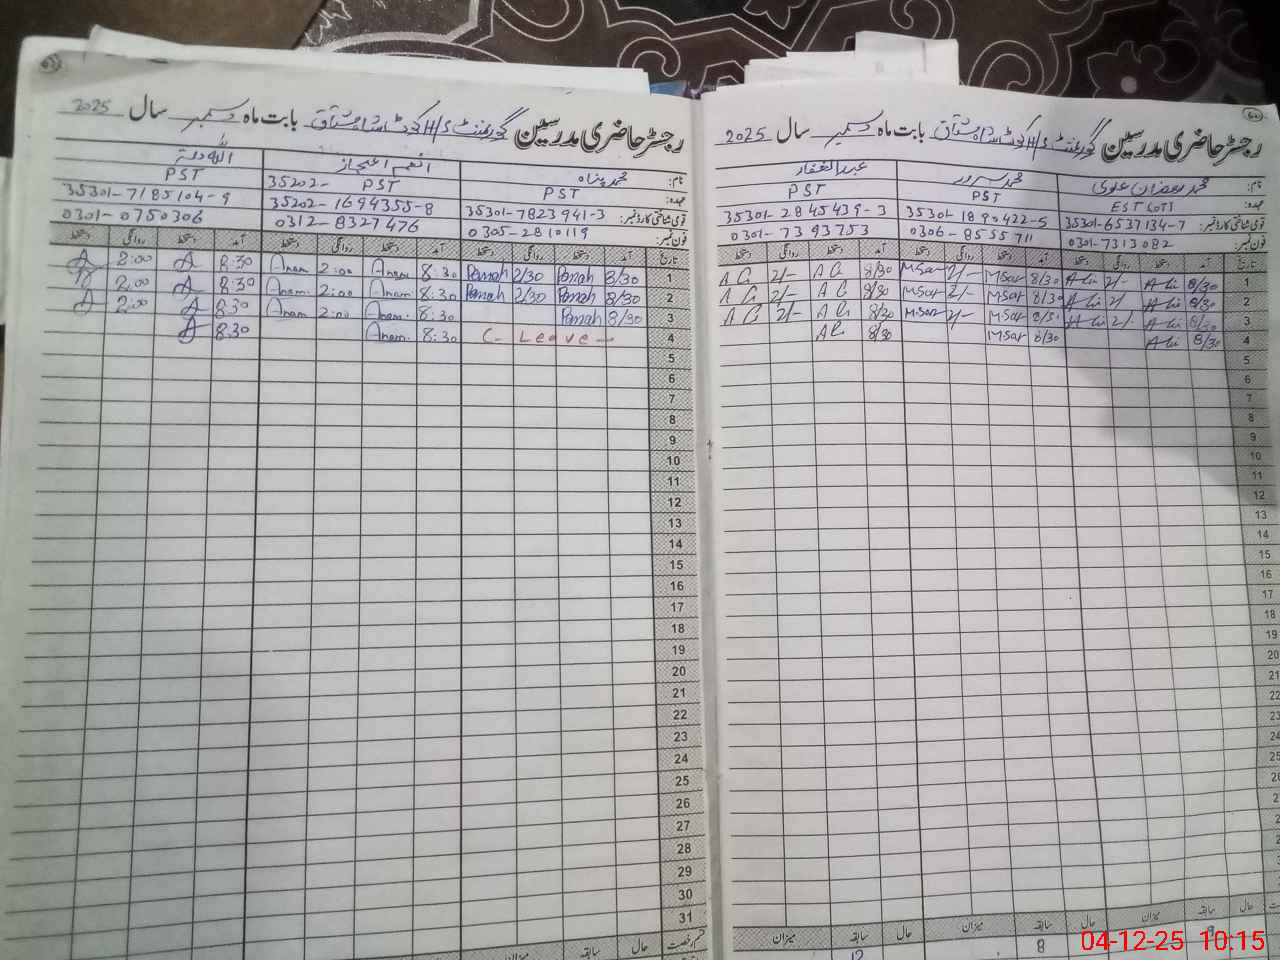 رجسٹر حاضری مدرسین گورنمنٹ H/S کوٹ اسد مشتاق بابت ماہ دسمبر سال 2025
نام: محمد رمضان علوی محمد سرور عبدالغفار
عہدہ: EST (OT) PST PST
قومی شناختی کارڈ نمبر: 35301-6537134-7 35301-1890422-5 35301-2845439-3
فون نمبر: 0301-7313082 0306-8555711 0301-7393753
تاریخ آمد دستخط روانگی دستخط آمد دستخط روانگی دستخط آمد دستخط روانگی دستخط
1 8/30 Ali 2/- Ali 8/30 MSar 2/- MSar 8/30 AG 2/- AG
2 8/30 Ali 2/- Ali 8/30 MSar 2/- MSar 8/30 AG 2/- AG
3 8/30 Ali 2/- Ali 8/30 MSar 2/- MSar 8/30 AG 2/- AG
4 8/30 Ali 8/30 MSar 8/30 AG
5
6
7
8
9
10
11
12
13
14
15
16
17
18
19
20
21
22
23
24
25
حال سابقہ میزان حال سابقہ میزان حال سابقہ میزان
8 12
رجسٹر حاضری مدرسین گورنمنٹ H/S کوٹ اسد مشتاق بابت ماہ دسمبر سال 2025
نام: محمد پناہ انعم اعجاز اللہ دتہ
عہدہ: PST 35202- PST PST
قومی شناختی کارڈ نمبر: 35301-7823941-3 35202-1694355-8 35301-7185104-9
فون نمبر: 0305-2810119 0312-8327476 0301-0750306
تاریخ آمد دستخط روانگی دستخط آمد دستخط روانگی دستخط آمد دستخط روانگی دستخط
1 8/30 Panah 2/30 Panah 8:30 Anam 2:00 Anam 8:30 A 2:00 A
2 8/30 Panah 2/30 Panah 8:30 Anam 2:00 Anam 8:30 A 2:00 A
3 8/30 Panah 8:30 Anam 2:00 Anam 8:30 A 2:00 A
4 C-Leave 8:30 Anam 8:30 A
5
6
7
8
9
10
11
12
13
14
15
16
17
18
19
20
21
22
23
24
25
26
27
28
29
30
31
قسم رخصت حال سابقہ میزان حال سابقہ
04-12-25 10:15